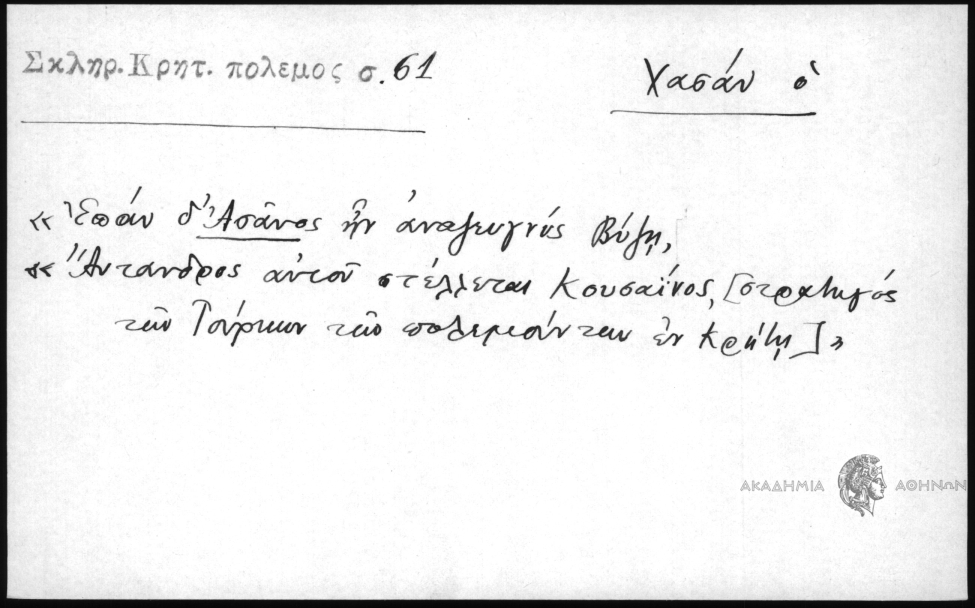 Σκληρ. Κρητ. πολεμος σ. 61
Χασάν ὁ
« Ἐπάν δ' Ἀσᾶνος ἦν ἀναζευγνύς Βύζῃ,
« Ἄντανδρος αὐτοῦ στέλλεται Κουσαΐνος, [στρατηγός
τῶν Τούρκων τῶν πολεμούντων ἐν Κρήτῃ]»
ΑΚΑΔΗΜΙΑ ΑΘΗΝΩΝ